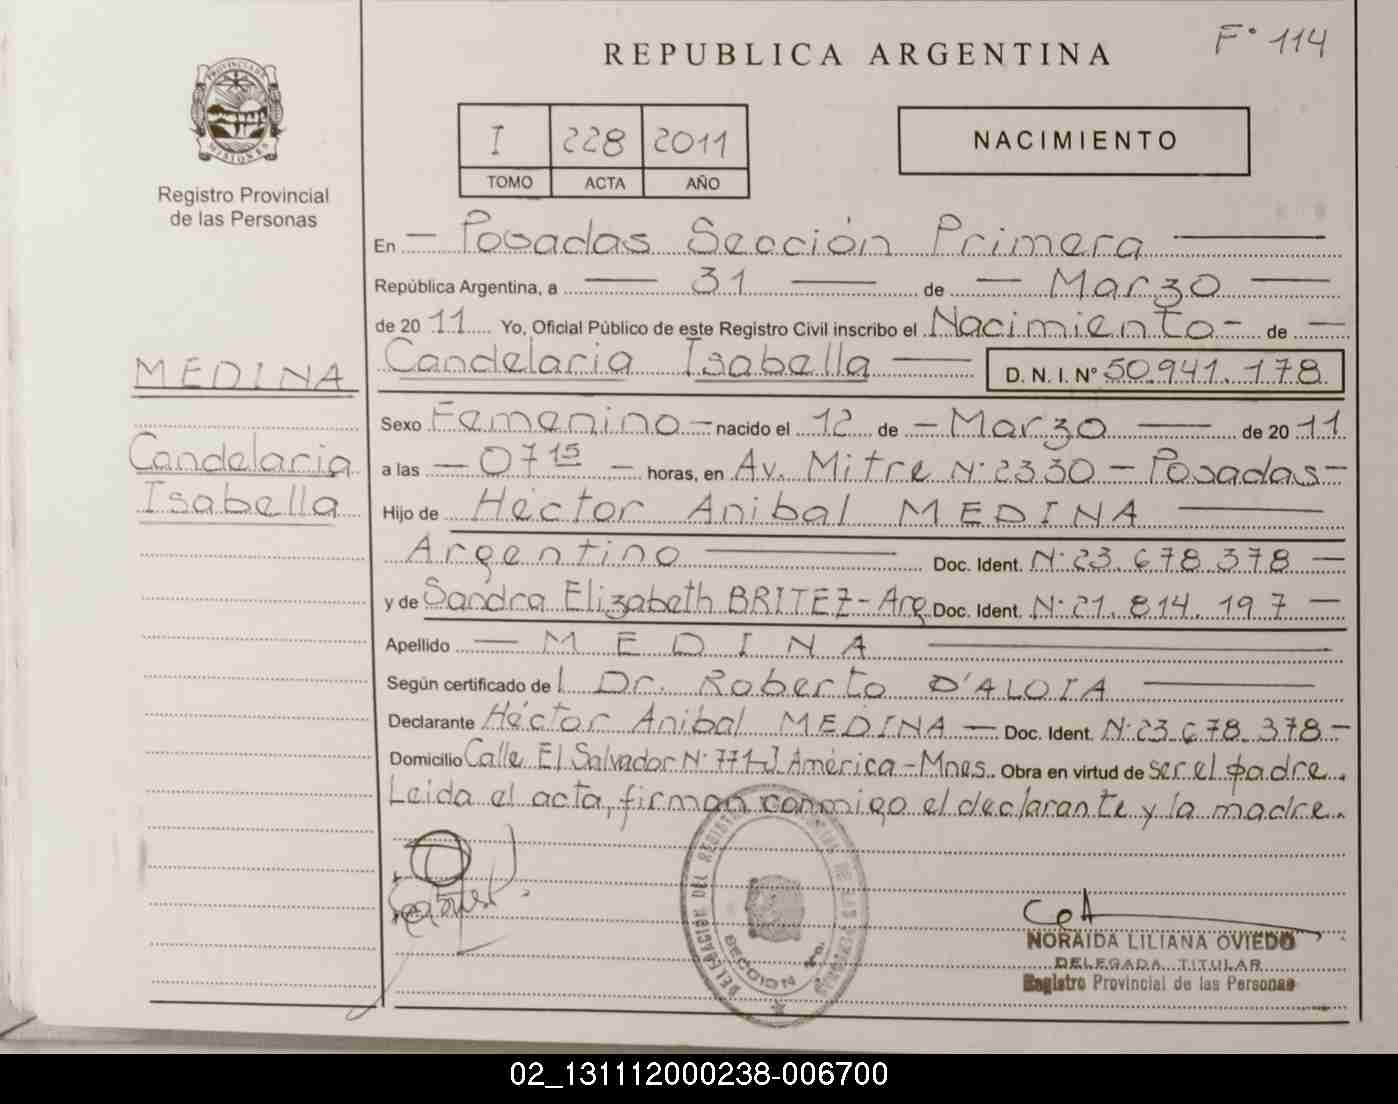 F° 114
REPUBLICA ARGENTINA
PROVINCIA DE
MISIONES
Registro Provincial
de las Personas
I 228 2011
TOMO ACTA AÑO
NACIMIENTO
En — Posadas Sección Primera —
República Argentina, a — 31 — de — Marzo —
de 20 11 Yo, Oficial Público de este Registro Civil inscribo el Nacimiento - de —
Candelaria Isabella — D. N. I. N° 50.941.178
MEDINA
Candelaria
Isabella
Sexo Femenino — nacido el 12 de — Marzo — de 20 11
a las — 07 15 — horas, en Av. Mitre N° 2330 — Posadas —
Hijo de Héctor Anibal MEDINA —
Argentino — Doc. Ident. N° 23.678.378 —
y de Sandra Elizabeth BRITEZ - Arg Doc. Ident. N° 21.814.197 —
Apellido — MEDINA —
Según certificado del Dr. Roberto D'ALOIA —
Declarante Héctor Anibal MEDINA — Doc. Ident. N° 23.678.378 —
Domicilio Calle El Salvador N° 771- América - Mnes. Obra en virtud de ser el padre.
Leida el acta, firman conmigo el declarante y la madre.
SECCION 1ra.
NORAIDA LILIANA OVIEDO
DELEGADA TITULAR
Registro Provincial de las Personas
02_131112000238-006700